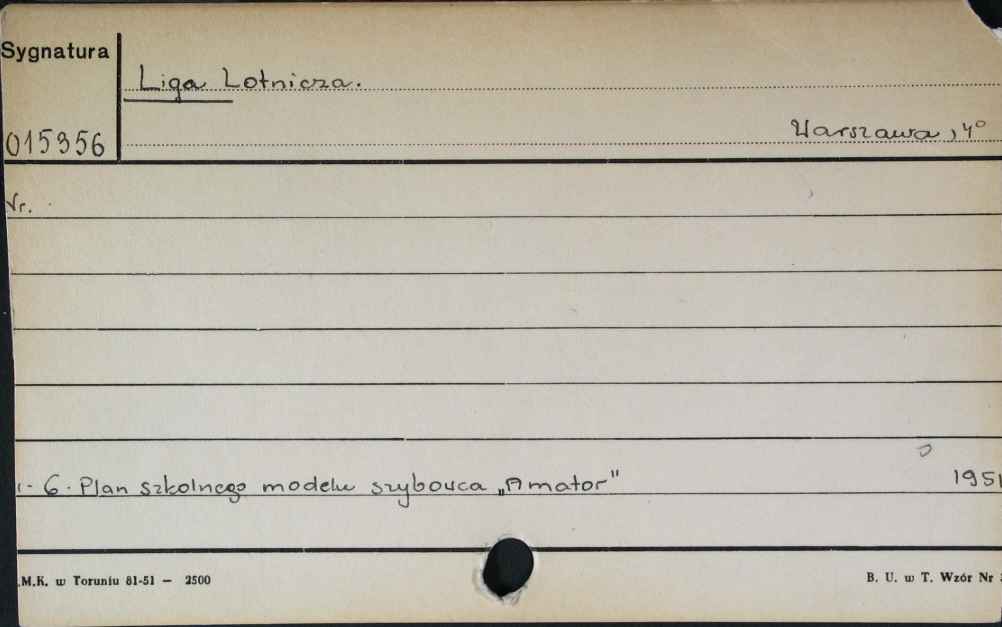 Sygnatura
Liga Lotnicza.
015356
Warszawa, 4°
Nr.
6. Plan szkolnego modelu szybowca „Amator"
1951
.M.K. w Toruniu 81-51 — 2500
B. U. w T. Wzór Nr